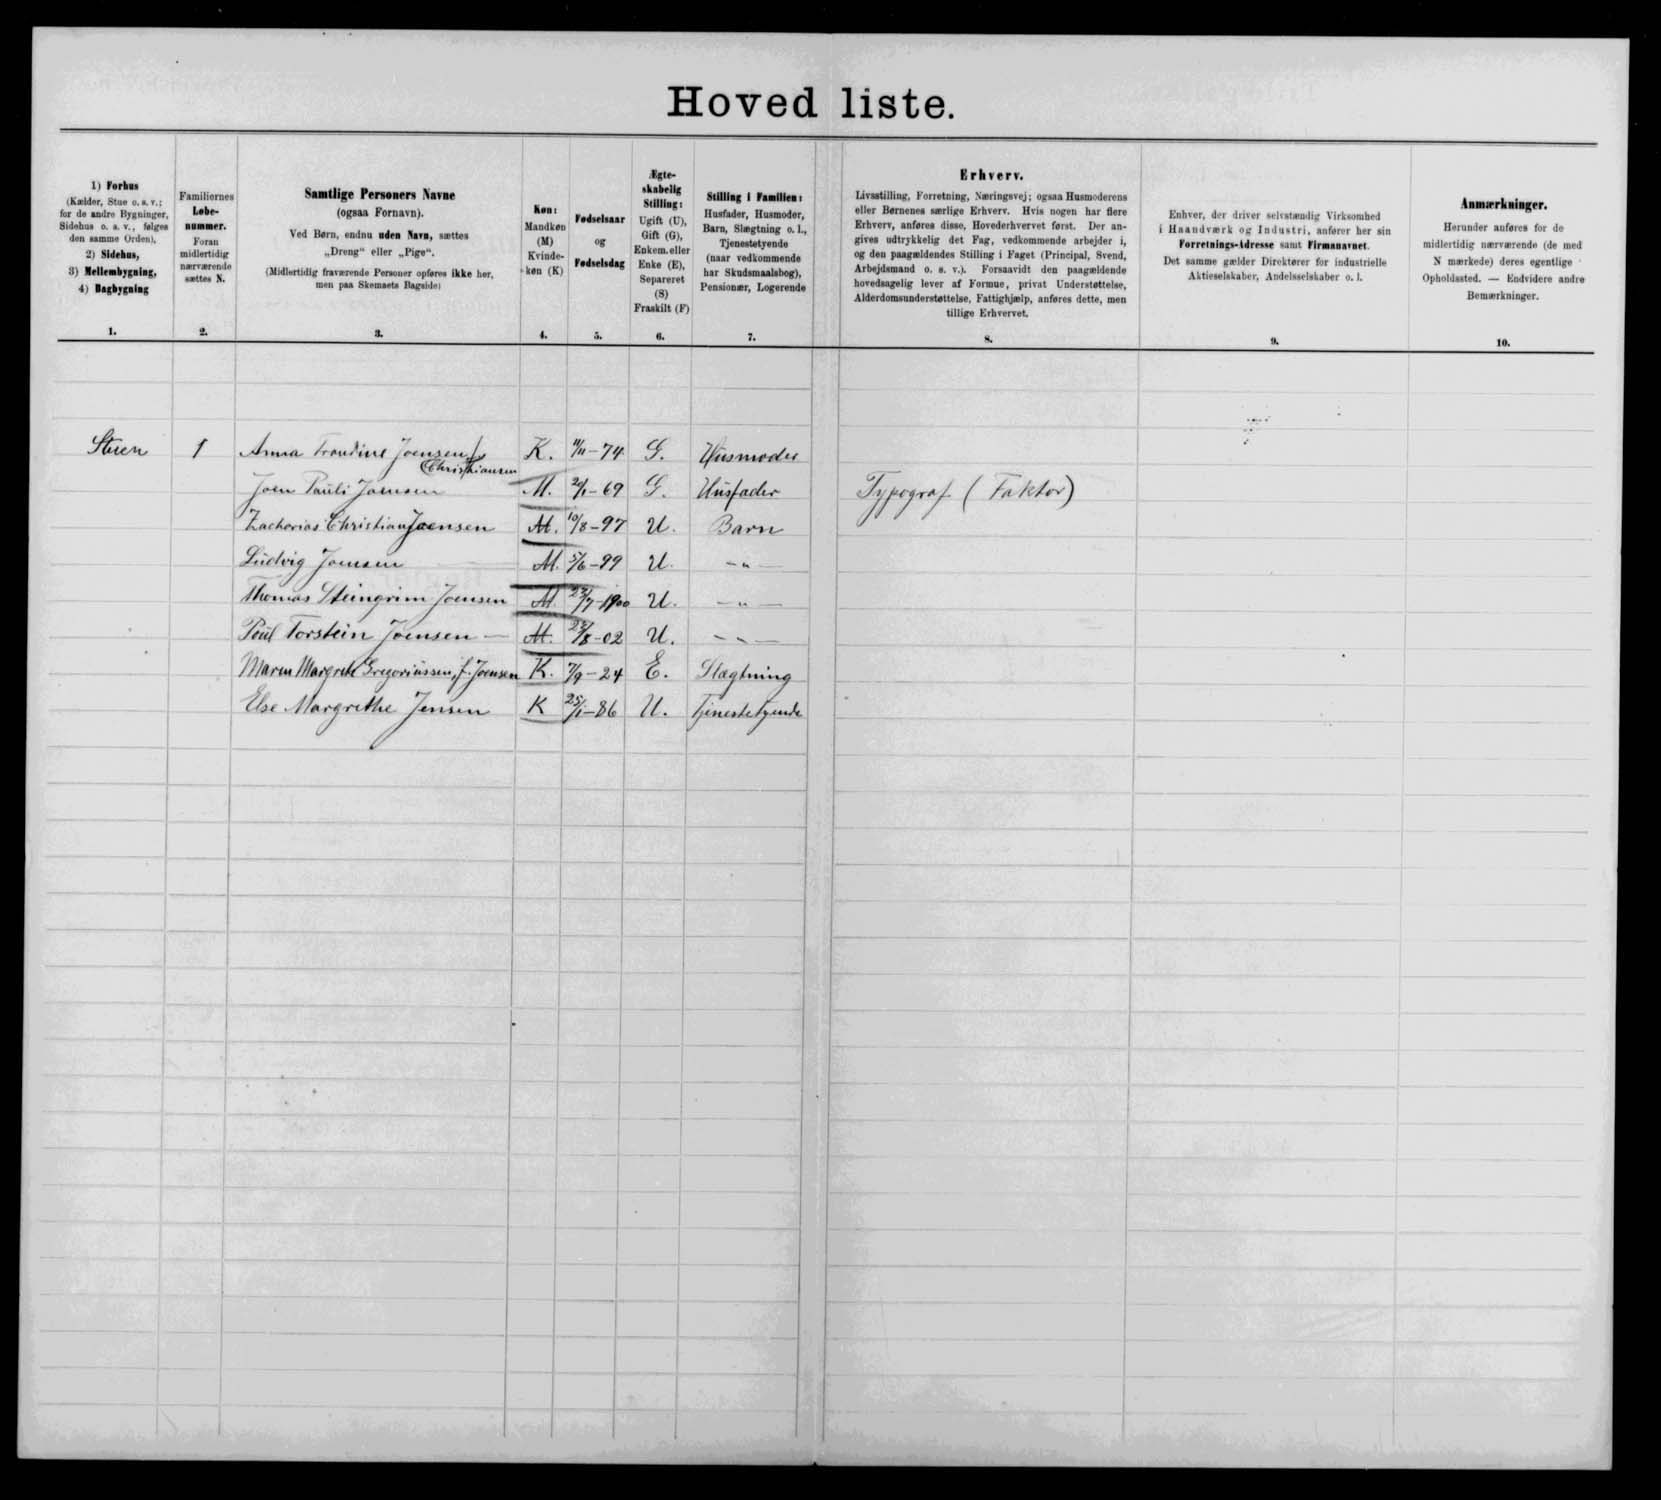 Hoved liste.
1) Forhus
(Kælder, Stue o. s. v.;
for de andre Bygninger,
Sidehus o. s. v., følges
den samme Orden),
2) Sidehus,
3) Mellembygning,
4) Bagbygning
1.
Familiernes
Løbe-
nummer.
Foran
midlertidig
nærværende
sættes N.
2.
Samtlige Personers Navne
(ogsaa Fornavn).
Ved Børn, endnu uden Navn, sættes
„Dreng“ eller „Pige“.
(Midlertidig fraværende Personer opføres ikke her,
men paa Skemaets Bagside)
3.
Køn:
Mandkøn
(M)
Kvinde-
køn (K)
4.
Fødselsaar
og
Fødselsdag
5.
Ægte-
skabelig
Stilling:
Ugift (U),
Gift (G),
Enkem. eller
Enke (E),
Separeret
(S)
Fraskilt (F)
6.
Stilling i Familien:
Husfader, Husmoder,
Barn, Slægtning o. l.,
Tjenestetyende
(naar vedkommende
har Skudsmaalsbog),
Pensionær, Logerende
7.
Erhverv.
Livsstilling, Forretning, Næringsvej; ogsaa Husmoderens
eller Børnenes særlige Erhverv. Hvis nogen har flere
Erhverv, anføres disse, Hovederhvervet først. Der an-
gives udtrykkelig det Fag, vedkommende arbejder i,
og den paagældendes Stilling i Faget (Principal, Svend,
Arbejdsmand o. s. v.). Forsaavidt den paagældende
hovedsagelig lever af Formue, privat Understøttelse,
Alderdomsunderstøttelse, Fattighjælp, anføres dette, men
tillige Erhvervet.
8.
Enhver, der driver selvstændig Virksomhed
i Haandværk og Industri, anfører her sin
Forretnings-Adresse samt Firmanavnet.
Det samme gælder Direktører for industrielle
Aktieselskaber, Andelsselskaber o. l.
9.
Anmærkninger.
Herunder anføres for de
midlertidig nærværende (de med
N mærkede) deres egentlige
Opholdssted. — Endvidere andre
Bemærkninger.
10.
Stuen 1 Anna Frandine Joensen f. K. 11/11-74 G. Husmoder
Christiansen
Joen Pauli Joensen M. 20/1-69 G. Husfader Typograf (Faktor)
Zacharias Christian Joensen M. 10/8-97 U. Barn
Ludvig Joensen M. 5/6-99 U. —„—
Thomas Steingrim Joensen M. 23/7-1900 U. —„—
Poul Torstein Joensen — M. 23/8-02 U. —„—
Maren Margrete Gregoriussen, f. Joensen K. 7/9-24 E. Slægtning
Else Margrethe Jensen K 25/1-86 U. Tjenestetyende